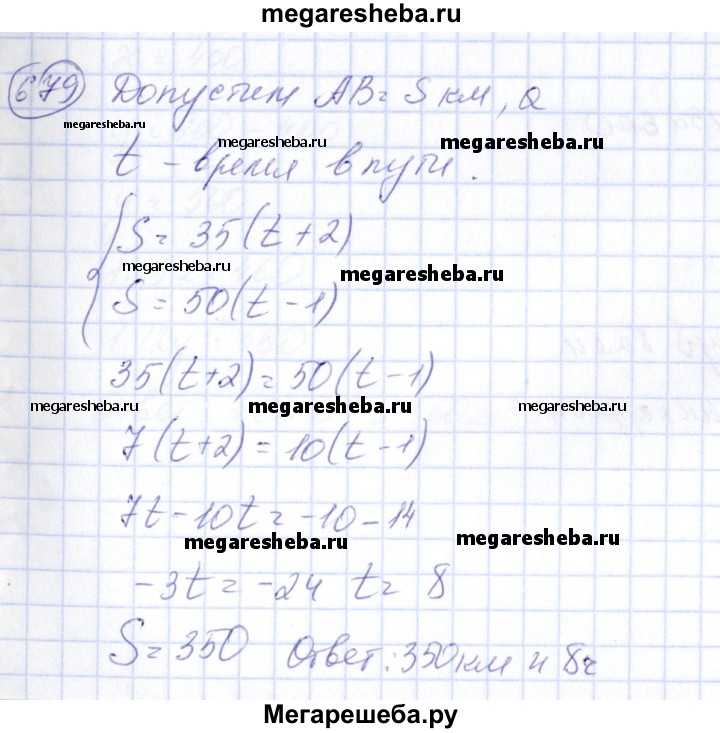 megaresheba.ru
679 Допустим AB = S км, а
megaresheba.ru
megaresheba.ru
t – время в пути.
S = 35(t+2)
megaresheba.ru
megaresheba.ru
S = 50(t-1)
35(t+2) = 50(t-1)
megaresheba.ru megaresheba.ru megaresheba.ru
7(t+2) = 10(t-1)
7t - 10t = -10 - 14
megaresheba.ru megaresheba.ru
-3t = -24 t = 8
S = 350 Ответ: 350 км и 8 ч
Мегарешеба.ру